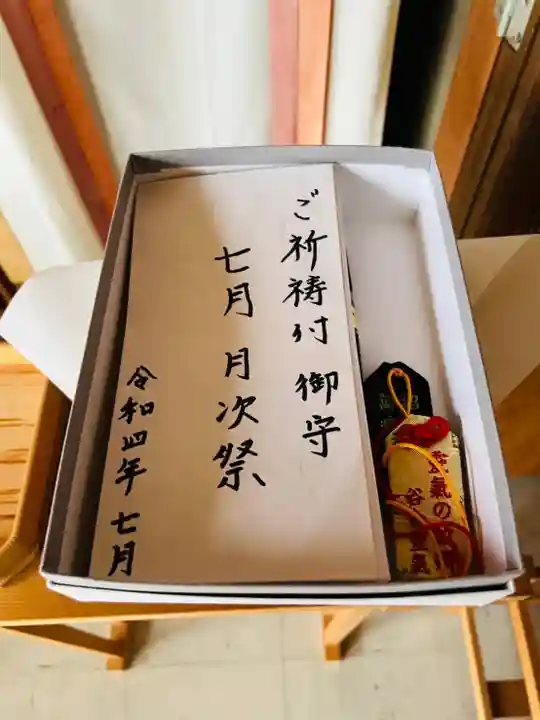 ご祈祷付 御守
七月 月次祭
令和四年 七月
氣の